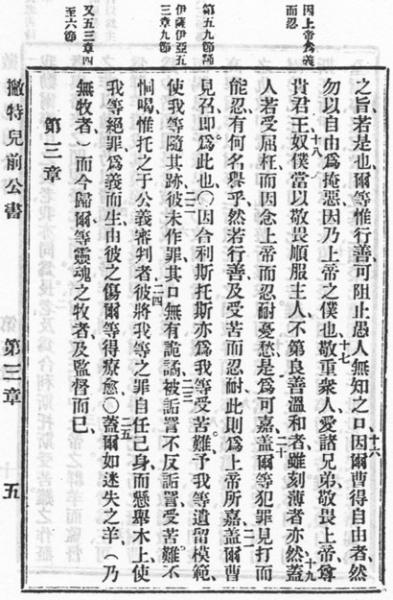 因上帝爲義
而忍
第五九節謂
伊薩伊亞五
三章九節
又五三章四
至六節
之旨、若是也、爾等惟行善、可阻止愚人無知之口、十六因爾曹得自由者、然
勿以自由爲掩惡、因乃上帝之僕也、十七敬重衆人、愛諸兄弟、敬畏上帝、尊
貴君王、十八奴僕當以敬畏順服主人、不第良善溫和者、雖刻薄者亦然、十九蓋
人若受屈枉、而因念上帝而忍耐憂愁、是爲可嘉、二十蓋爾等犯罪見打而
能忍、有何名譽乎、然若行善及受苦而忍耐、此則爲上帝所嘉、二一爾曹
見召、即爲此也、〇因合利斯托斯亦爲我等受苦難、予我等遺留模範、
使我等隨其跡、二二彼未作罪、其口無有詭譎、二三被詬詈不反詬詈、受苦難不
恫喝、惟托之于公義審判者、二四彼將我等之罪自任己身、而懸舉木上、使
我等絕罪、爲義而生、由彼之傷、爾等得療愈、〇二五蓋爾如迷失之羊、（乃
無牧者、）而今歸爾等靈魂之牧者及監督而已、
第三章
撇特兒前公書
第三章
五